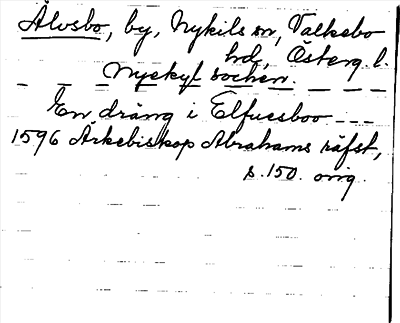 Älvsbo, by, Nykils sn, Valkebo
hd, Österg. l.
Nyckyl sochen.
En dräng i Elfuesboo ---
1596 Ärkebiskop Abrahams räfst,
s. 150. orig.